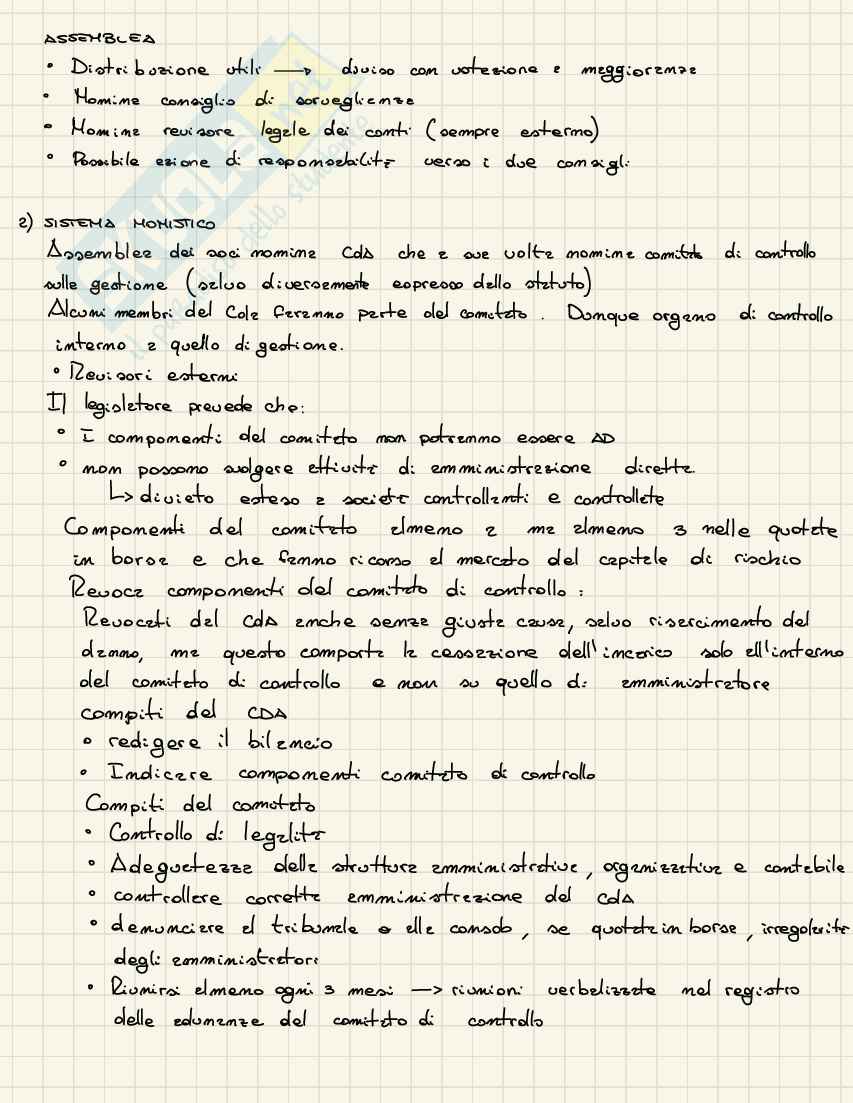 ASSEMBLEA
• Distribuzione utili → diviso con votazione a maggioranza
• Nomina consiglio di sorveglianza
• Nomina revisore legale dei conti (sempre esterno)
• Possibile azione di responsabilità verso i due consigli
2) SISTEMA MONISTICO
Assemblea dei soci nomina CdA che a sua volta nomina comitato di controllo
sulla gestione (salvo diversamente espresso dallo statuto)
Alcuni membri del Cda faranno parte del comitato. Dunque organo di controllo
interno a quello di gestione.
• Revisori esterni
Il legislatore prevede che:
• I componenti del comitato non potranno essere AD
• non possono svolgere attività di amministrazione diretta.
↳ divieto esteso a società controllanti e controllate
Componenti del comitato almeno 2 ma almeno 3 nelle quotate
in borsa e che fanno ricorso al mercato del capitale di rischio
Revoca componenti del comitato di controllo:
Revocati dal CdA anche senza giusta causa, salvo risarcimento del
danno, ma questo comporta la cessazione dell'incarico solo all'interno
del comitato di controllo e non su quello di amministratore
compiti del CDA
• redigere il bilancio
• Indicare componenti comitato di controllo
Compiti del comitato
• Controllo di legalità
• Adeguatezza della struttura amministrativa, organizzativa e contabile
• controllare corretta amministrazione del CdA
• denunciare al tribunale o alla consob, se quotata in borsa, irregolarità
degli amministratori
• Riunirsi almeno ogni 3 mesi → riunioni verbalizzate nel registro
delle adunanze del comitato di controllo
SKUOLA.net
il paradiso dello studente